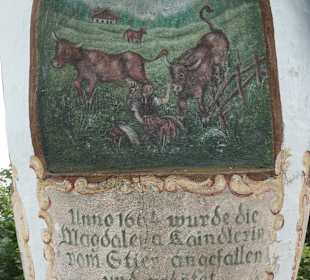 Anno 1664 wurde die
Magdalena Kaindlerin
vom Stier angefallen
und